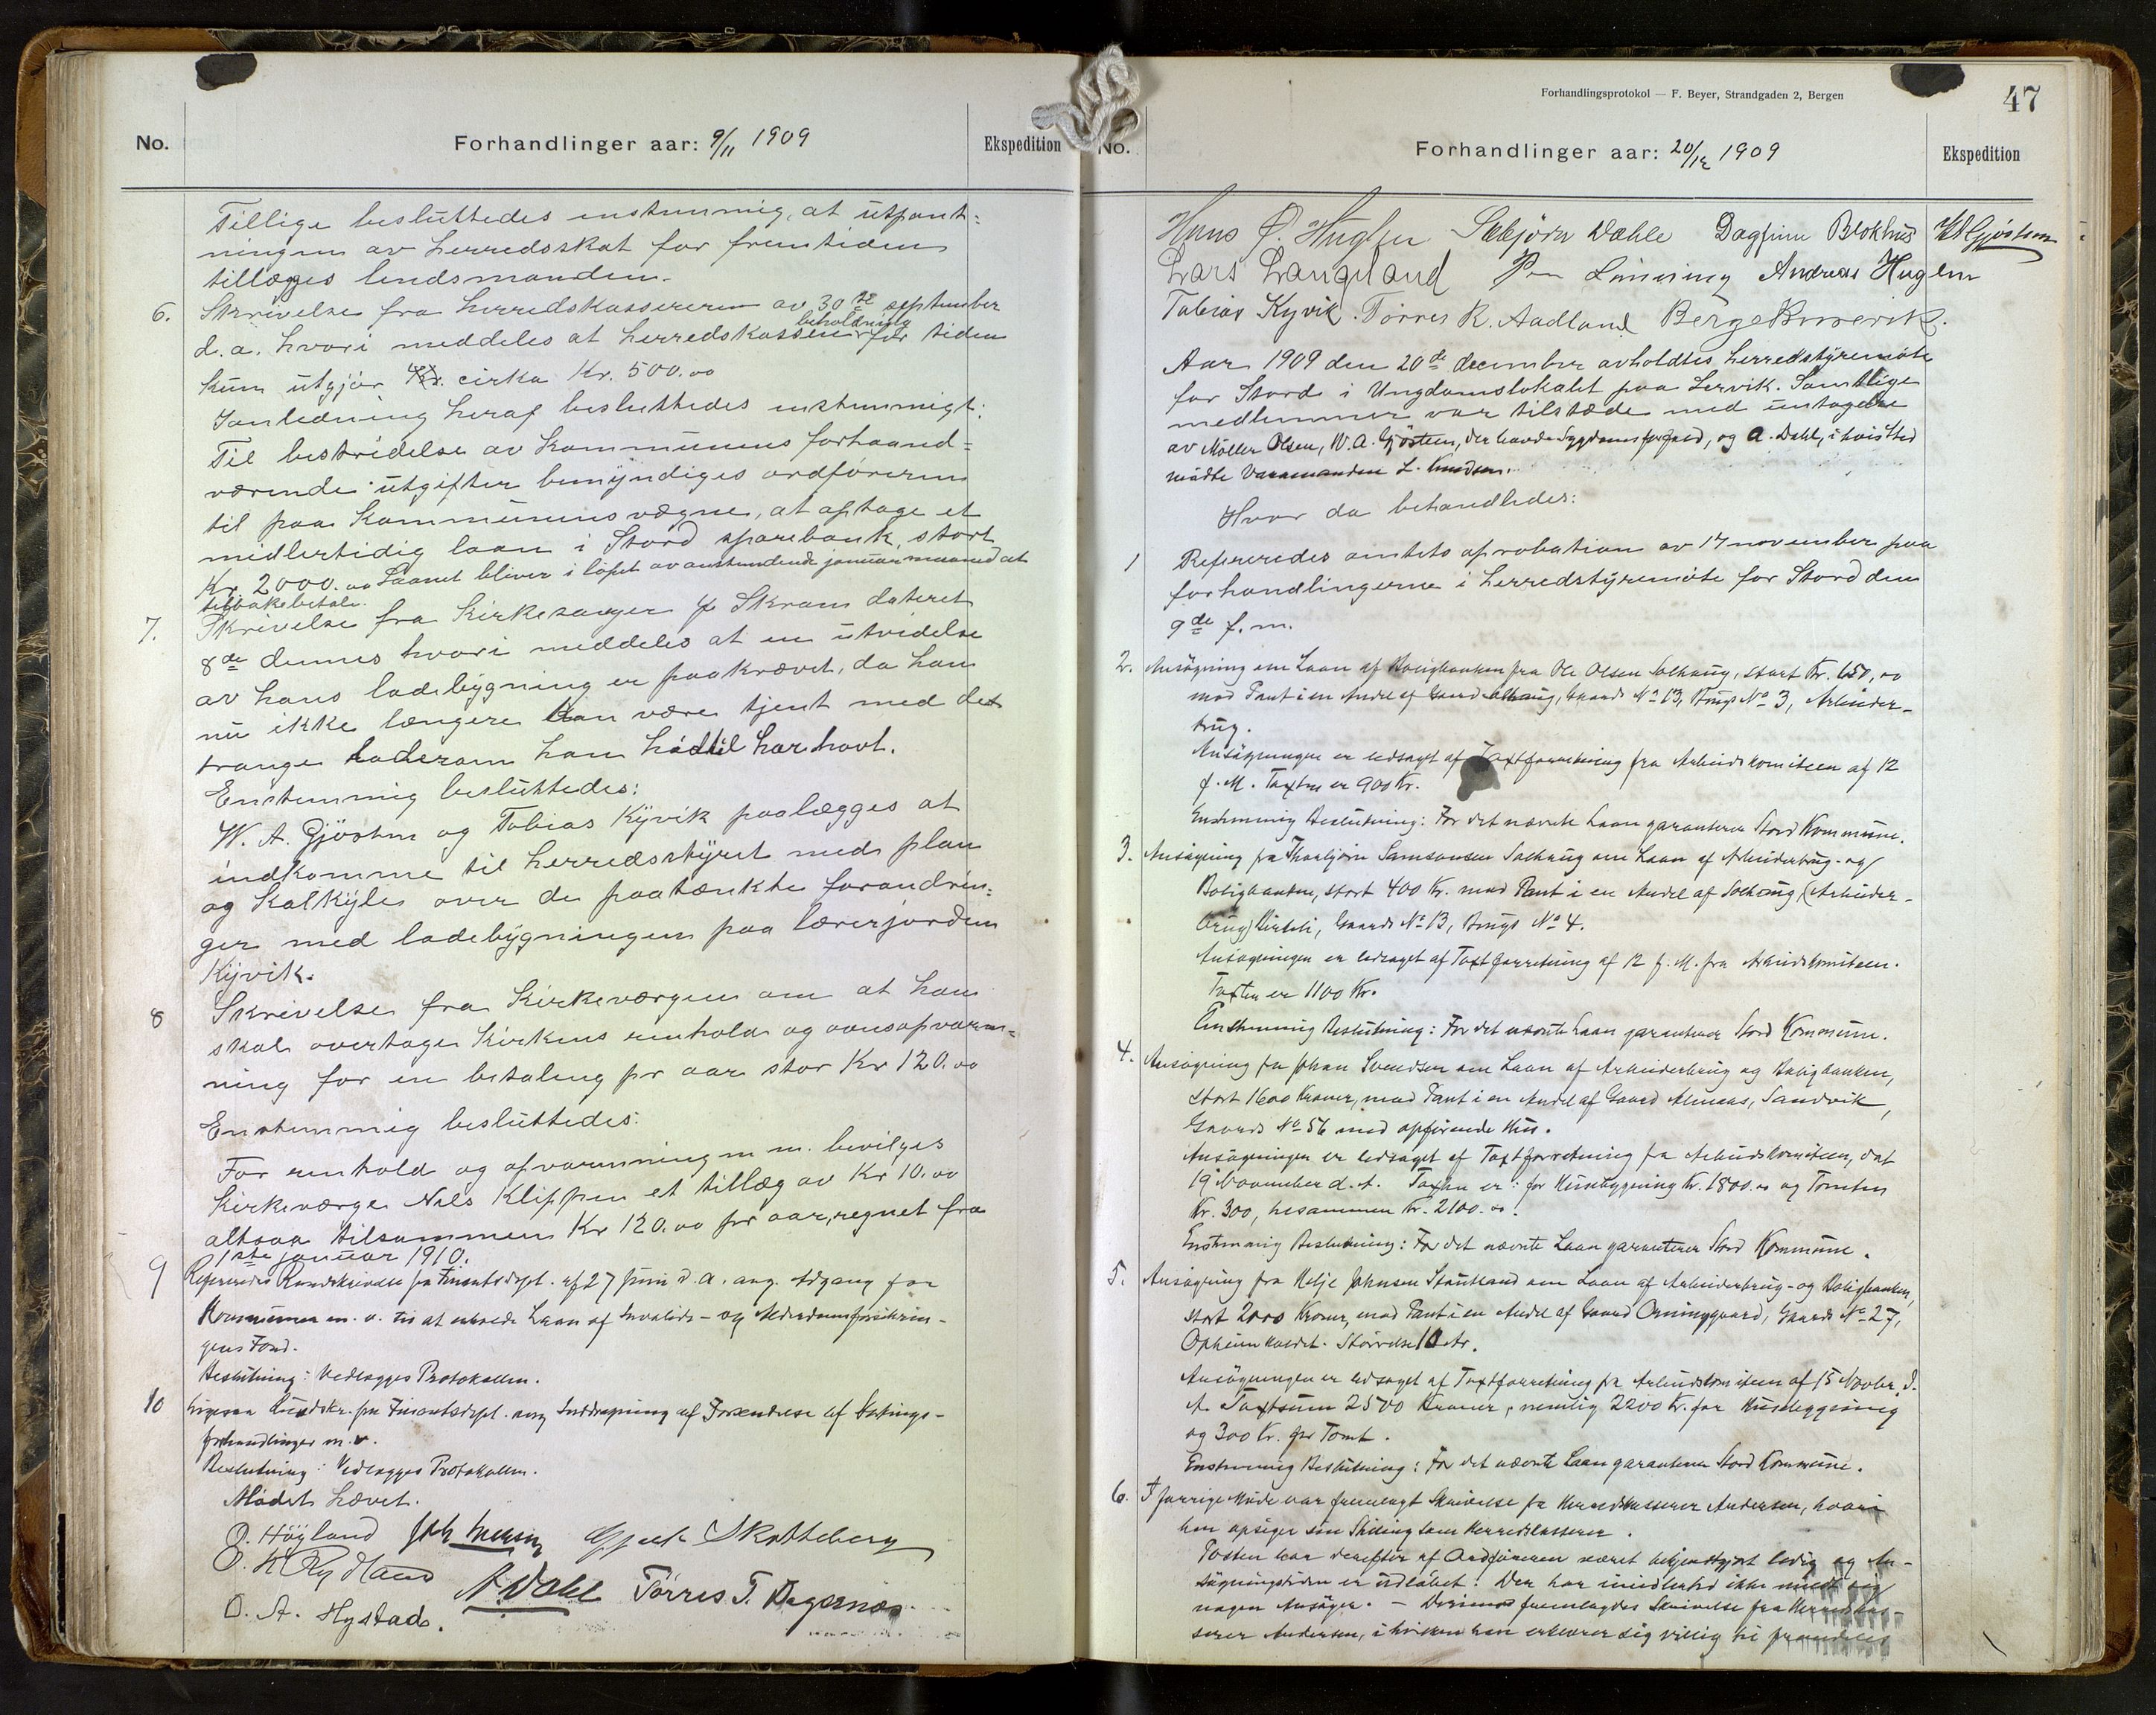 No. Forhandlinger aar: 9/11 1909 Ekspedition
Tillige besluttedes enstemmig, at utpant=
ningen av herredsskat for fremtiden
tillægges lendsmanden.
6. Skrivelse fra herredskassereren av 30te september
d.a. hvori meddeles at herredskassen beholdning for tiden
kun utgjør cirka Kr. 500.00
I anledning heraf besluttedes enstemmigt:
Til bestridelse av kommunens forhaand=
værende utgifter bemyndiges ordføreren
til paa kommunens vægne, at optage et
midlertidig laan i Stord sparebank, stort
Kr 2000.00 Laanet bliver i løpet av anstundende januar maaned at
tilbakebetale.
7. Skrivelse fra Kirkesanger Skram dateret
8de dennes hvori meddeles at en utvidelse
av hans ladebygning er paakrævet, da han
nu ikke længere kan være tjent med det
trange laderom han hidtil har havt.
Enstemmig besluttedes:
W. A. Gjøsten og Tobias Kyvik paalægges at
indkomme til herredsstyret med plan
og kalkyle over de paatænkte forandrin=
ger med ladebygningen paa lærerjorden
Kyvik.
8 Skrivelse fra Kirkeværgen om at han
skal overtage Kirkens renhold og ovnsopvarm=
ning for en betaling pr aar stor Kr 120.00
Enstemmig besluttedes:
For renhold og opvarmning m m. bevilges
Kirkeværge Nils Klippen et tillæg av Kr 10.00
altsaa tilsammen Kr 120.00 pr aar, regnet fra
1ste januar 1910.
9 Refereredes Rundskrivelse fra Finantsdept. af 27 Juni d.A. ang. Adgang for
Kommuner m.v. til at erholde Laan af Invalide- og Alderdomsforsikrin-
gens Fond.
Beslutning: Vedlægges Protokollen.
10 Ligesaa Rundskr. fra Finantsdept. ang Inddragning af Forsendelse af
forhandlinger m.v.
Beslutning: Vedlægges Protokollen.
Mødet hævet.
O. Høyland Skotteberg
O. K Rydland A. Dahl Tørres T. Dagsnæs
O. A. Hystad.
Forhandlingsprotokol — F. Beyer, Strandgaden 2, Bergen
47
No. Forhandlinger aar: 20/12 1909 Ekspedition
Hans Ø. Huglen Sæbjørn Dahle Dagfinn Blokhus W A Gjøsten
Lars Langeland Per Lønning Andreas Huglen
Tobias Kyvik. Tørres R. Aadland Berge
Aar 1909 den 20de december avholdtes herredstyremøte
for Stord i Ungdomslokalet paa Lervik. Samtlige
medlemmer var tilstæde med untagelse
av Møller Olsen, W. A. Gjøsteen, der havde Sygdomsforfald, og A. Dahl, i hvis sted
mødte Varamanden L. Knudsen.
Hvor da behandledes:
1 Refereredes amtets aprobation av 17 november paa
forhandlingerne i herredstyremøte for Stord den
9de f.m.
2. Ansøgning om Laan af Boligbanken fra Ole Olsen Solhaug, stort Kr. 650,00
mod Pant i en Andel af Gaard Solhaug, Gaards No 13, Brugs No 3, Arbeider-
brug.
Ansøgningen er ledsaget af Taxtforretning fra Arbeidskomiteen af 12
f.M. Taxten er 900 Kr.
Enstemmig Beslutning: For det nævnte Laan garanterer Stord Kommune.
3. Ansøgning fra Thorbjørn Samsonsen Solhaug om Laan af Arbeiderbrug- og
Boligbanken, stort 400 Kr. mod Pant i en Andel af Solhaug (Arbeider-
brug) Birkeli, Gaards No 13, Brugs No 4.
Ansøgningen er ledsaget af Taxtforretning af 12 f.M. fra Arbeidskomiteen.
Taxten er 1100 Kr.
Enstemmig Beslutning: For det nævnte Laan garanterer Stord Kommune.
4. Ansøgning fra Johan Svendsen om Laan af Arbeiderbrug og Boligbanken,
stort 1600 Kroner, mod Pant i en Andel af Gaard Almaas, Sandvik,
Gaards No 56 med opførende Hus.
Ansøgningen er ledsaget af Taxtforretning fra Arbeidskomiteen, dat
19 November d.A. Taxten er: for Husebygning Kr. 1800.00 og Tomten
Kr. 300, tilsammen Kr. 2100.00.
Enstemmig Beslutning: For det nævnte Laan garanterer Stord Kommune.
5. Ansøgning fra Helje Johnsen Stautland om Laan af Arbeiderbrug- og Boligbanken,
stort 2000 Kroner, mod Pant i en Andel af Gaard Orninggaard, Gaards No 27,
Opheim kaldet. Størrelse 10 Ar.
Ansøgningen er ledsaget af Taxtforretning fra Arbeidskomiteen af 15 Novbr. d.
A. Taxtsum 2500 Kroner, nemlig 2200 Kr. for Husebygning
og 300 Kr. for Tomt.
Enstemmig Beslutning: For det nævnte Laan garanterer Stord Kommune.
6. I forrige Møde var fremlagt Skrivelse fra Herredskasserer Andersen, hvori
han opsiger sin Stilling som Herredskasserer.
Posten har derefter af Ordføreren været bekjendtgjort ledig og An-
søgningstiden er udløbet. Der har imidlertid ikke meldt sig
nogen Ansøger. – Derimod fremlagdes Skrivelse fra Herredskas-
serer Andersen, i hvilken han erklærer sig villig til fremdeles